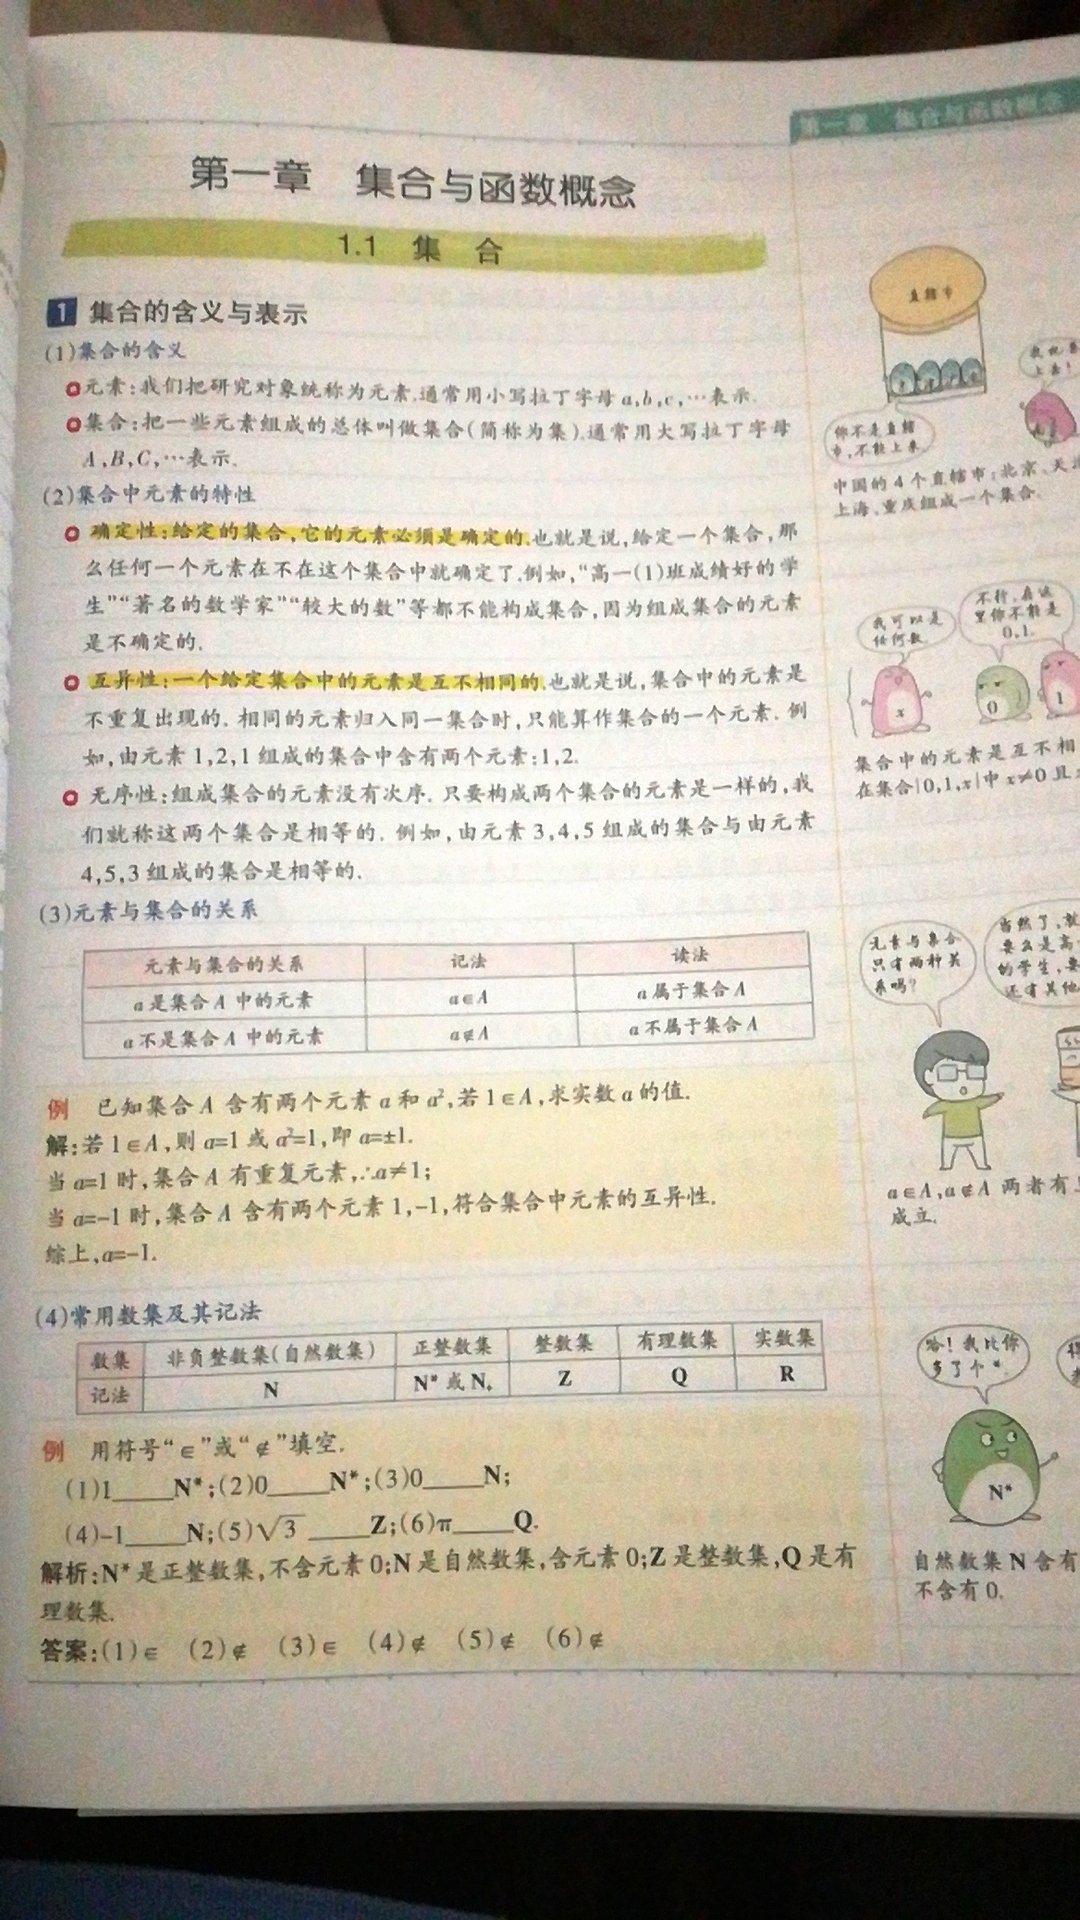 第一章 集合与函数概念
第一章 集合与函数概念
1.1 集 合
1 集合的含义与表示
(1)集合的含义
元素:我们把研究对象统称为元素.通常用小写拉丁字母a,b,c,…表示.
集合:把一些元素组成的总体叫做集合(简称为集).通常用大写拉丁字母
A,B,C,…表示.
(2)集合中元素的特性
确定性:给定的集合,它的元素必须是确定的.也就是说,给定一个集合,那
么任何一个元素在不在这个集合中就确定了.例如,“高一(1)班成绩好的学
生”“著名的数学家”“较大的数”等都不能构成集合,因为组成集合的元素
是不确定的.
互异性:一个给定集合中的元素是互不相同的.也就是说,集合中的元素是
不重复出现的.相同的元素归入同一集合时,只能算作集合的一个元素.例
如,由元素1,2,1组成的集合中含有两个元素:1,2.
无序性:组成集合的元素没有次序.只要构成两个集合的元素是一样的,我
们就称这两个集合是相等的.例如,由元素3,4,5组成的集合与由元素
4,5,3组成的集合是相等的.
(3)元素与集合的关系
元素与集合的关系 记法 读法
a是集合A中的元素 a∈A a属于集合A
a不是集合A中的元素 a∉A a不属于集合A
例 已知集合A含有两个元素a和a²,若1∈A,求实数a的值.
解:若1∈A,则a=1或a²=1,即a=±1.
当a=1时,集合A有重复元素,∴a≠1;
当a=-1时,集合A含有两个元素1,-1,符合集合中元素的互异性.
综上,a=-1.
(4)常用数集及其记法
数集 非负整数集(自然数集) 正整数集 整数集 有理数集 实数集
记法 N N*或N₊ Z Q R
例 用符号“∈”或“∉”填空.
(1)1____N*;(2)0____N*;(3)0____N;
(4)-1____N;(5)√3____Z;(6)π____Q.
解析:N*是正整数集,不含元素0;N是自然数集,含元素0;Z是整数集,Q是有
理数集.
答案:(1)∈ (2)∉ (3)∈ (4)∉ (5)∉ (6)∉
直辖市
你不是直辖
市,不能上来
中国的4个直辖市:北京、天
上海、重庆组成一个集合.
我可以是
任何数
不行,在这
里你不能是
0,1.
x
0
1
集合中的元素是互不相
在集合{0,1,x}中x≠0且
元素与集合
只有两种关
系吗?
当然了,就
要么是高
的学生,要
还有其他
a∈A,a∉A两者有
成立.
哈!我比你
多了个*.
N*
自然数集N含有
不含有0.